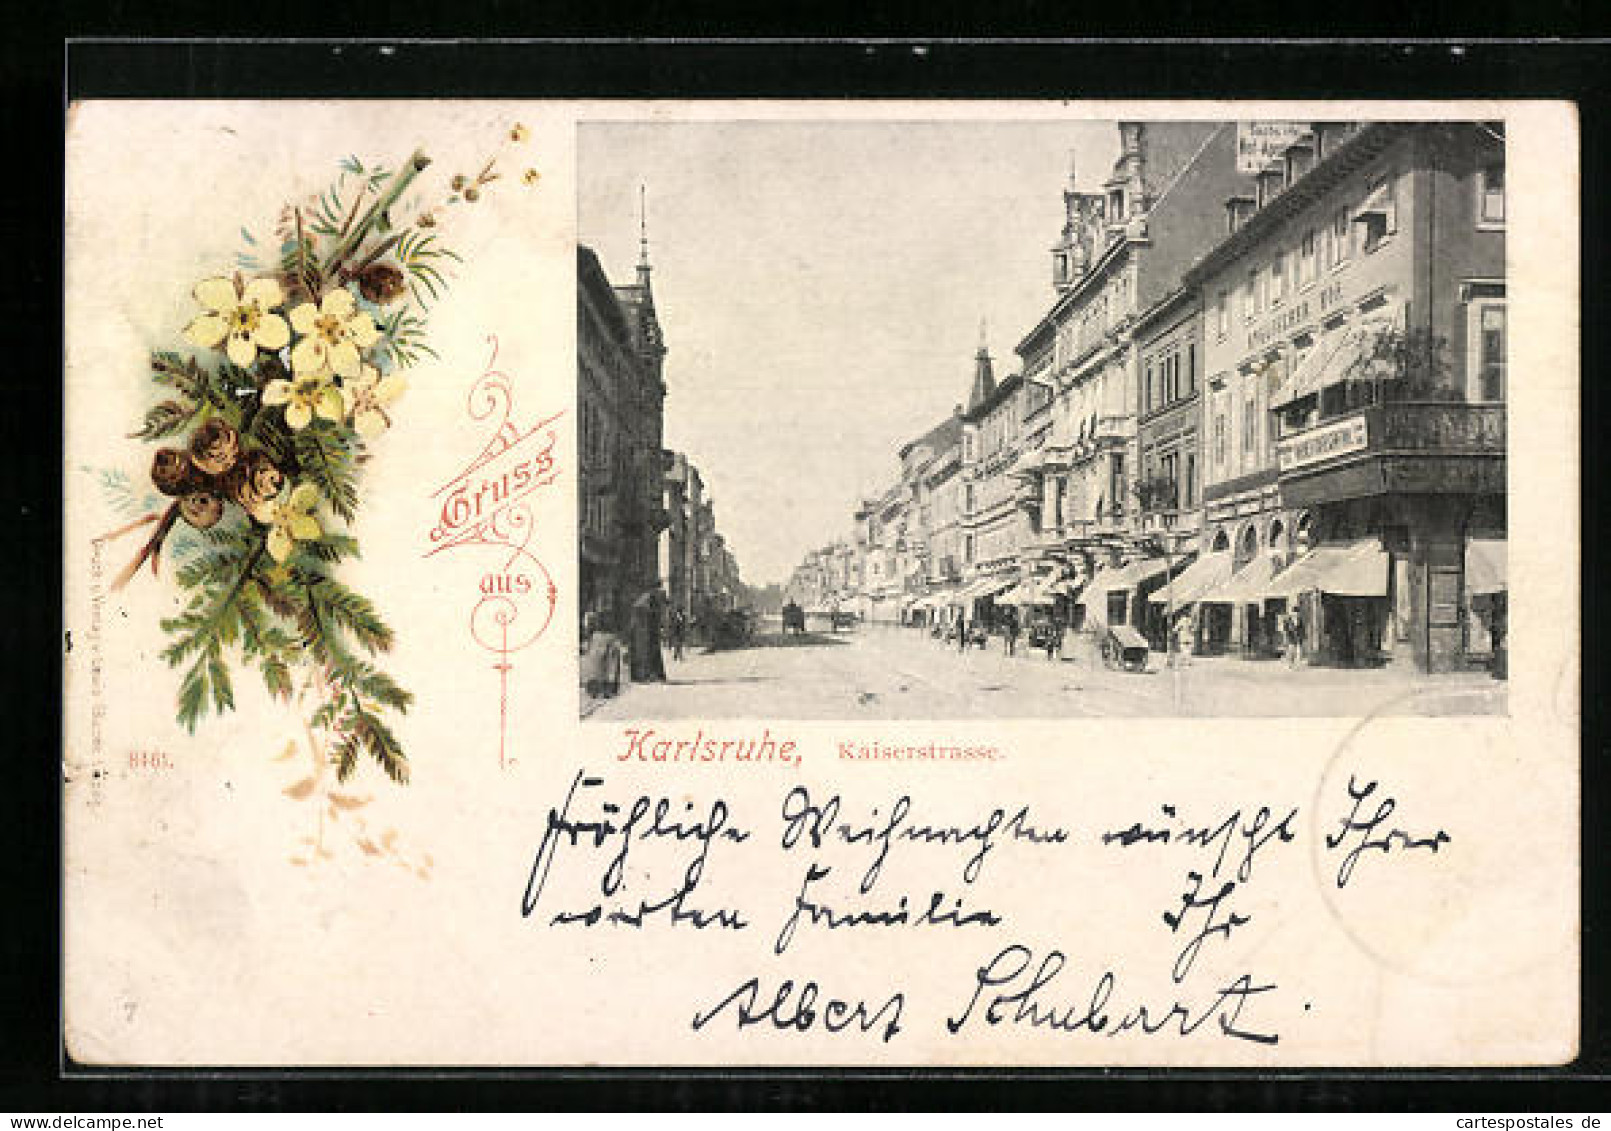 Gruss
aus
8461.
Karlsruhe, Kaiserstrasse.
Fröhliche Weihnachten wünscht Ihrer
werten Familie Ihr
Albert Schubart.
7
cartespostales de